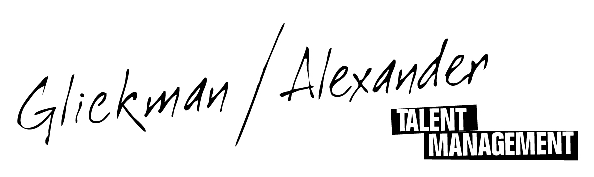 Glickman / Alexander
TALENT
MANAGEMENT